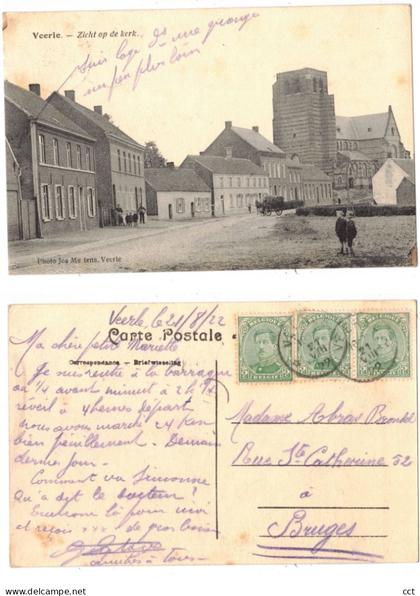 Veerle. — Zicht op de kerk.
Suis logé ds une grange
un peu plus loin
Photo Jos Me tens, Veerle
Veerle, le 21/8/22
Carte Postale
Correspondance – Briefwisseling
Ma chère petite Marielle
Je me rentre à la baraque
au 1/4 avant minuit à 2h 1/4
réveil à 4 heures départ
nous avons marché 24 Km
bien péniblement. Demain
dernier jour —
Comment va Simonne
Qu'a dit le docteur ?
Embrasse la pour moi
et reçois xxx de gros baisers
à tous —
Madame Abras
Rue Ste Catherine 52
à
Bruges
www.delcampe.net
cct